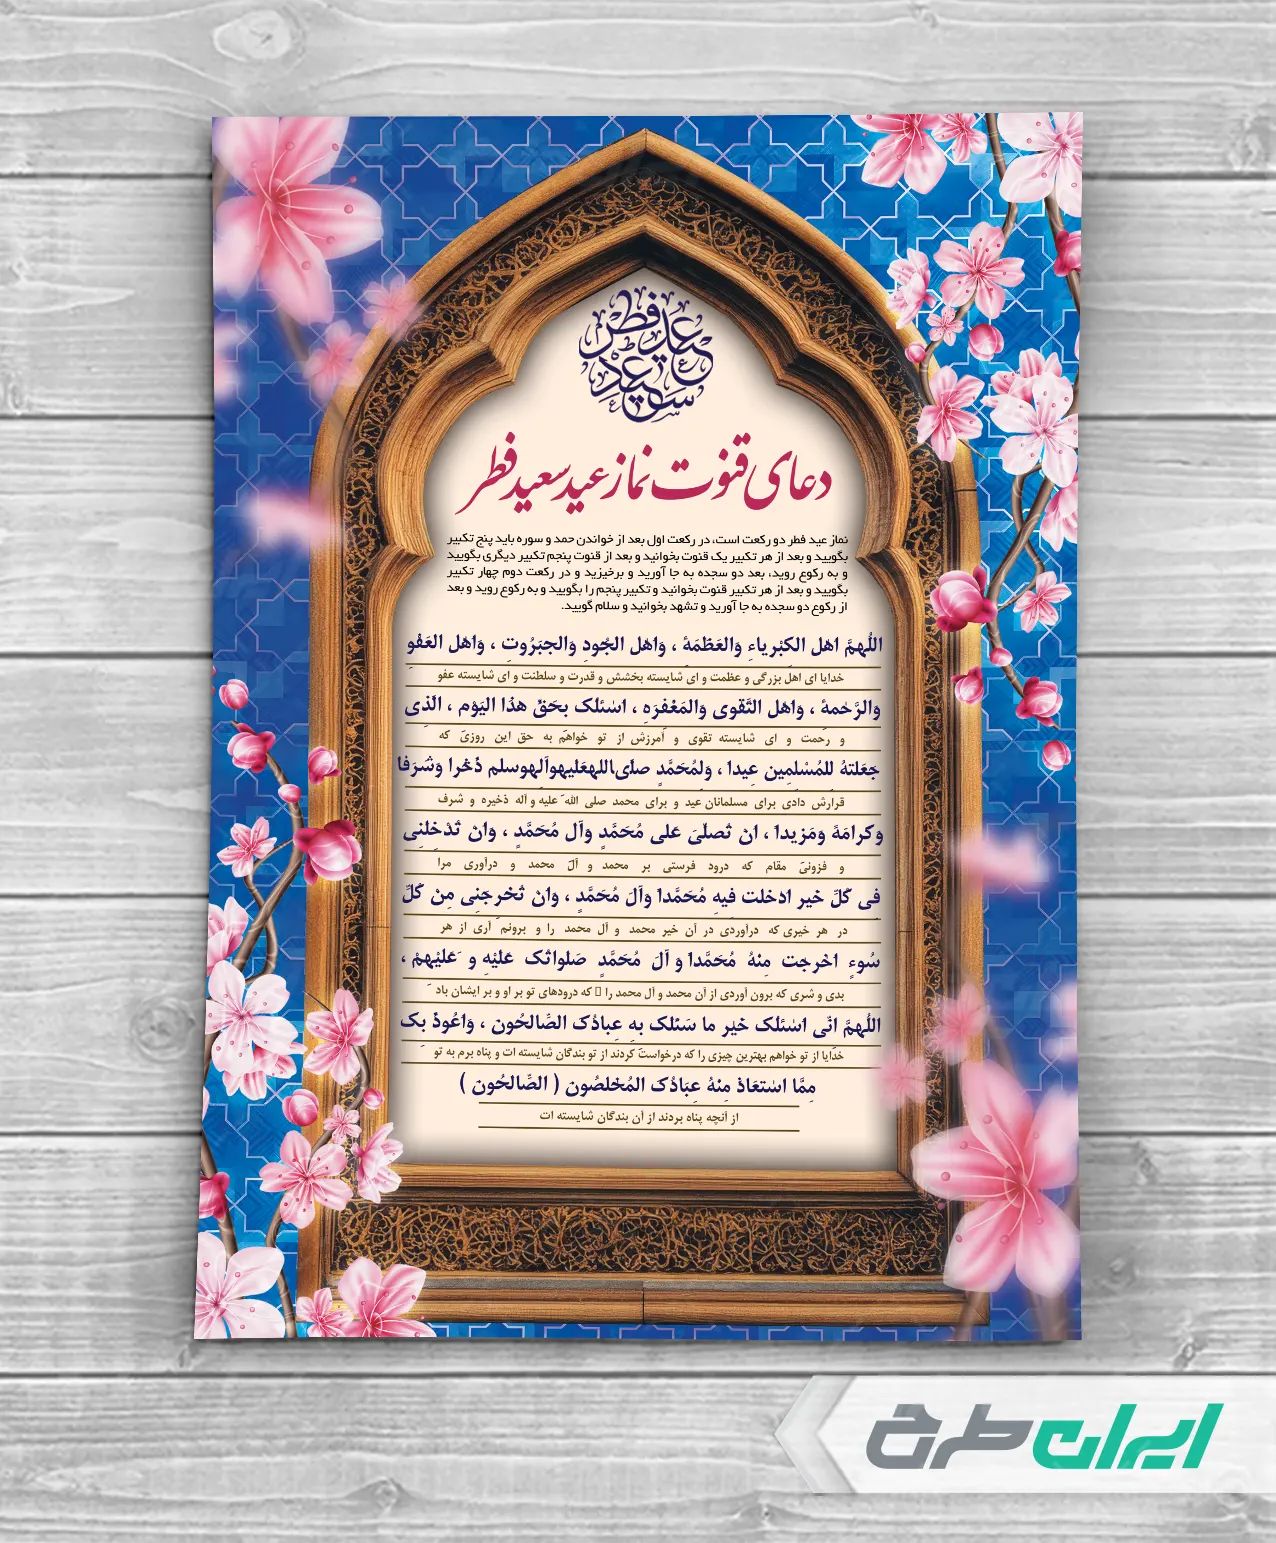 عید سعید فطر
دعای قنوت نماز عید سعید فطر
نماز عید فطر دو رکعت است، در رکعت اول بعد از خواندن حمد و سوره باید پنج تکبیر
بگویید و بعد از هر تکبیر یک قنوت بخوانید و بعد از قنوت پنجم تکبیر دیگری بگویید
و به رکوع روید، بعد دو سجده به جا آورید و برخیزید و در رکعت دوم چهار تکبیر
بگویید و بعد از هر تکبیر قنوت بخوانید و تکبیر پنجم را بگویید و به رکوع روید و بعد
از رکوع دو سجده به جا آورید و تشهد بخوانید و سلام گویید.
اللُهمَّ اهْل الکبْریاءِ والعَظَمَةْ ، وَاهْل الجُودِ والجبَرُوتِ ، وَاهْل العَفْو
خدایا ای اهل بزرگی و عظمت و ای شایسته بخشش و قدرت و سلطنت و ای شایسته عفو
والرَّحْمةْ ، وَاهْل التَّقوی والمَغْفرَهِ ، اسْئلک بحَقّ هذُا الیَوْم ، الَّذی
و رحمت و ای شایسته تقوی و آمرزش از تو خواهم به حق این روزی که
جَعَلتهُ للمُسْلِمِین عِیدا ، وَلِمُحَمَّدٍ صلّی‌الله‌علیه‌وآله‌وسلم ذُخْرا وشرَفا
قرارش دادی برای مسلمانان عید و برای محمد صلی الله علیه و آله ذخیره و شرف
وَکرامَةً وَمَزیدا ، انْ تُصلّیَ عَلی مُحَمَّدٍ وَآل مُحَمَّدٍ ، وَانْ تُدْخلنِی
و فزونی مقام که درود فرستی بر محمد و آل محمد و درآوری مرا
فِی کُلّ خیرٍ ادْخلت فِیهِ مُحَمَّدا وَآلَ مُحَمَّدٍ ، وَانْ تُخرجَنِی مِنْ کُلّ
در هر خیری که درآوردی در آن خیر محمد و آل محمد را و برونم آری از هر
سُوءٍ اخْرجت مِنهُ مُحَمَّدا وَ آلَ مُحَمَّدٍ صَلواتُک عَلیْهِ وَ عَلیْهمْ ،
بدی و شری که برون آوردی از آن محمد و آل محمد را که درودهای تو بر او و بر ایشان باد
اللُهمَّ انّی اسْئلک خیْر ما سَئلک بهِ عِبادُک الصّالحُون ، وَاعُوذُ بک
خدایا از تو خواهم بهترین چیزی را که درخواست کردند از تو بندگان شایسته ات و پناه برم به تو
مِمَّا اسْتعَاذْ مِنهُ عِبَادُک المُخْلصُون ( الصّالحُون )
از آنچه پناه بردند از آن بندگان شایسته ات
ایران طرح